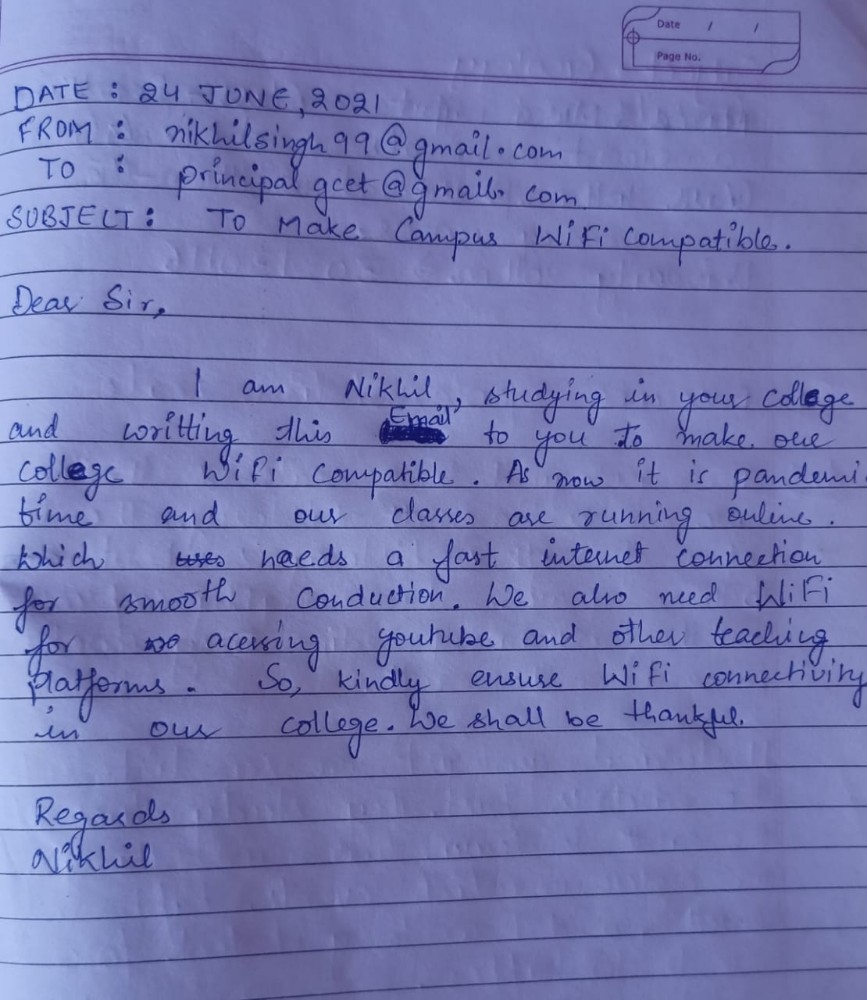 Date / /
Page No.
DATE : 24 JUNE, 2021
FROM : nikhilsingh99@gmail.com
TO : principalgcet@gmail.com
SUBJECT: To Make Campus WiFi Compatible.
Dear Sir,
I am Nikhil, studying in your college
and writting this Email to you to make our
college WiFi compatible. As now it is pandemi
time and our classes are running online.
which needs a fast internet connection
for smooth conduction. We also need WiFi
for acessing youtube and other teaching
platforms. So, kindly ensure WiFi connectivity
in our college. We shall be thankful.
Regards
Nikhil